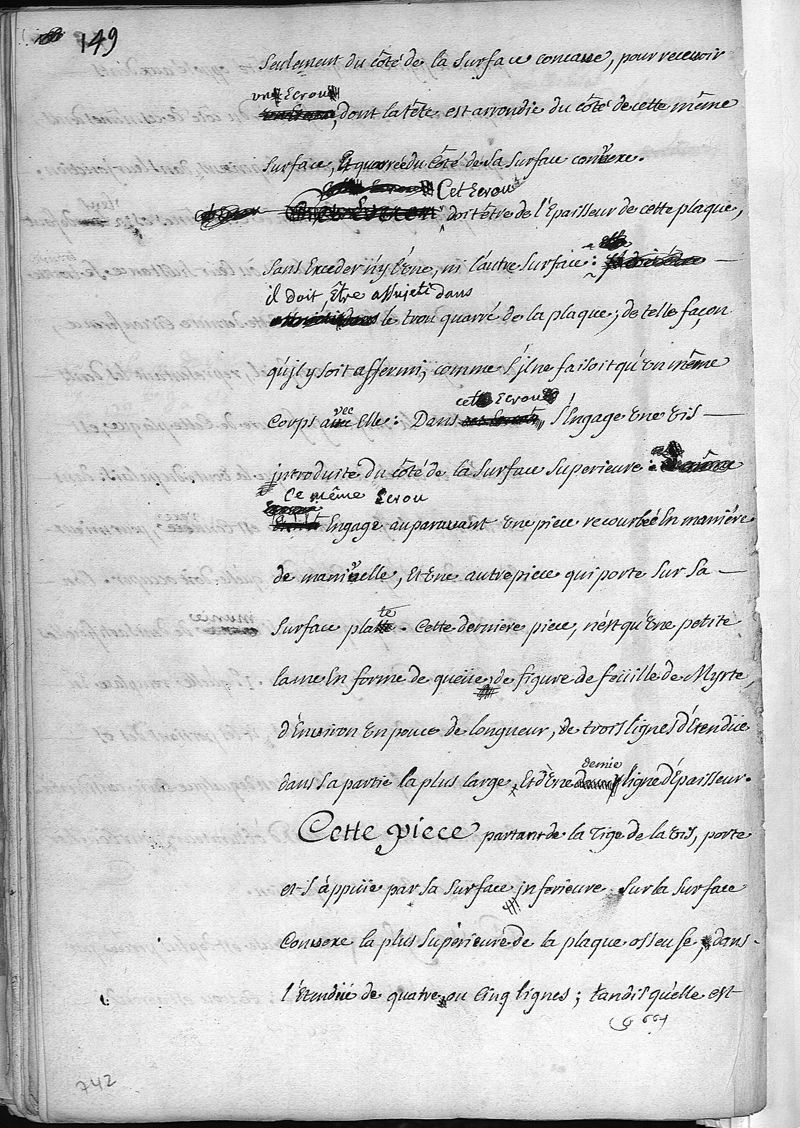 149
Seulement du côté de la surface concave, pour recevoir
un Ecrou
, dont la tête est arrondie du côté de cette même
surface, et quarrée du côté de sa surface convexe.
Cet Ecrou
doit être de l'Epaisseur de cette plaque,
sans Exceder n'y l'ène, ni l'autre surface :
il doit, Etre assujeti dans
le trou quarré de la plaque, de telle façon
qu'il y soit affermi, comme s'il ne faisoit qu'un même
Corps avec Elle : Dans s'Engage une vis
cet Ecrou
introduite du côté de la surface superieure :
Ce même Ecrou
Engage auparavant une piece recourbée En maniére
de manivelle, et une autre piece qui porte sur sa
surface platte. Cette derniere piece, n'est qu'une petite
lame En forme de queüe, de figure de feüille de Myrte,
d'Environ un pouce de longueur, de trois lignes d'Etendüe
demie
dans sa partie la plus large, Et d'une ligne d'Épaisseur.
Cette piece partant de la Tige de la vis, porte
et s'appuïe par sa surface inferieure sur la surface
Convexe la plus superieure de la plaque osseuse, dans
l'Etendüe de quatre ou Cinq lignes ; tandis qu'elle est
742